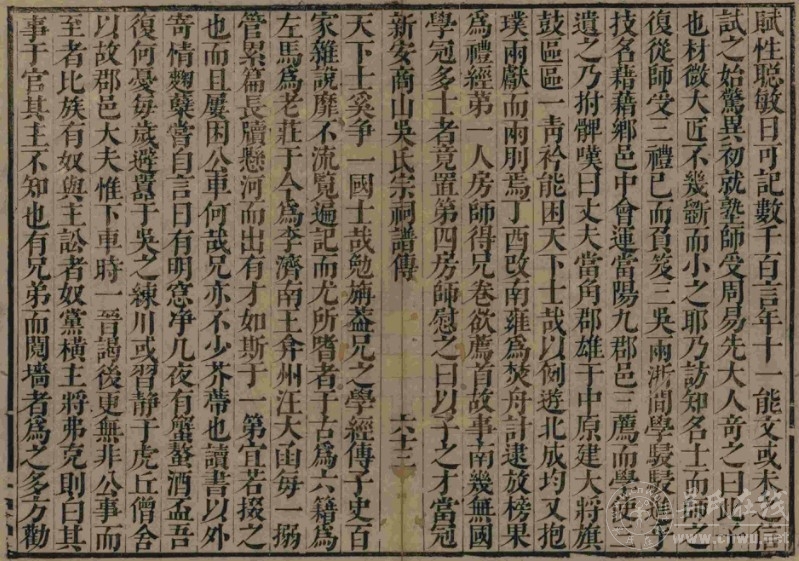 賦性聰敏日可記數千百言年十一能文或未之信
試之始驚異初就塾師受周易先大人奇之曰此子
也材微大匠不幾斵而小之耶乃訪知名士而師之
復從師受二禮已而負笈三吳兩浙間學駸駸進乎
技名藉藉鄉邑中會運當陽九郡邑三薦而學使三
遺之乃拊髀嘆曰丈夫當角郡雄于中原建大將旗
鼓區區一青衿能困天下士哉以例遊北成均又抱
璞兩獻而兩刖焉丁酉改南雍爲焚舟計逮放榜果
爲禮經第一人房師得兄卷欲薦首故事南幾無國
學冠多士者竟置第四房師慰之曰以子之才當冠
新安商山吳氏宗祠譜傳
六十三
天下士奚爭一國士哉勉旃葢兄之學經傳子史百
家雜說靡不流覽遍記而尤所嗜者于古爲六籍爲
左馬爲老莊于今爲李濟南王弇州汪大函每一搦
管累篇長牘懸河而出有才如斯于一第宜若掇之
也而且屢困公車何哉兄亦不少芥蔕也讀書以外
寄情麴櫱嘗自言曰有明窓净几夜有蟹螯酒盂吾
復何憂每歲避囂于吳之練川或習静于虎丘僧舍
以故郡邑大夫惟下車時一晉謁後更無非公事而
至者比族有奴與主訟者奴黨橫主將弗克則曰其
事于官其主不知也有兄弟而鬩墻者爲之多方勸
吳氏在线
www.cnwu.net